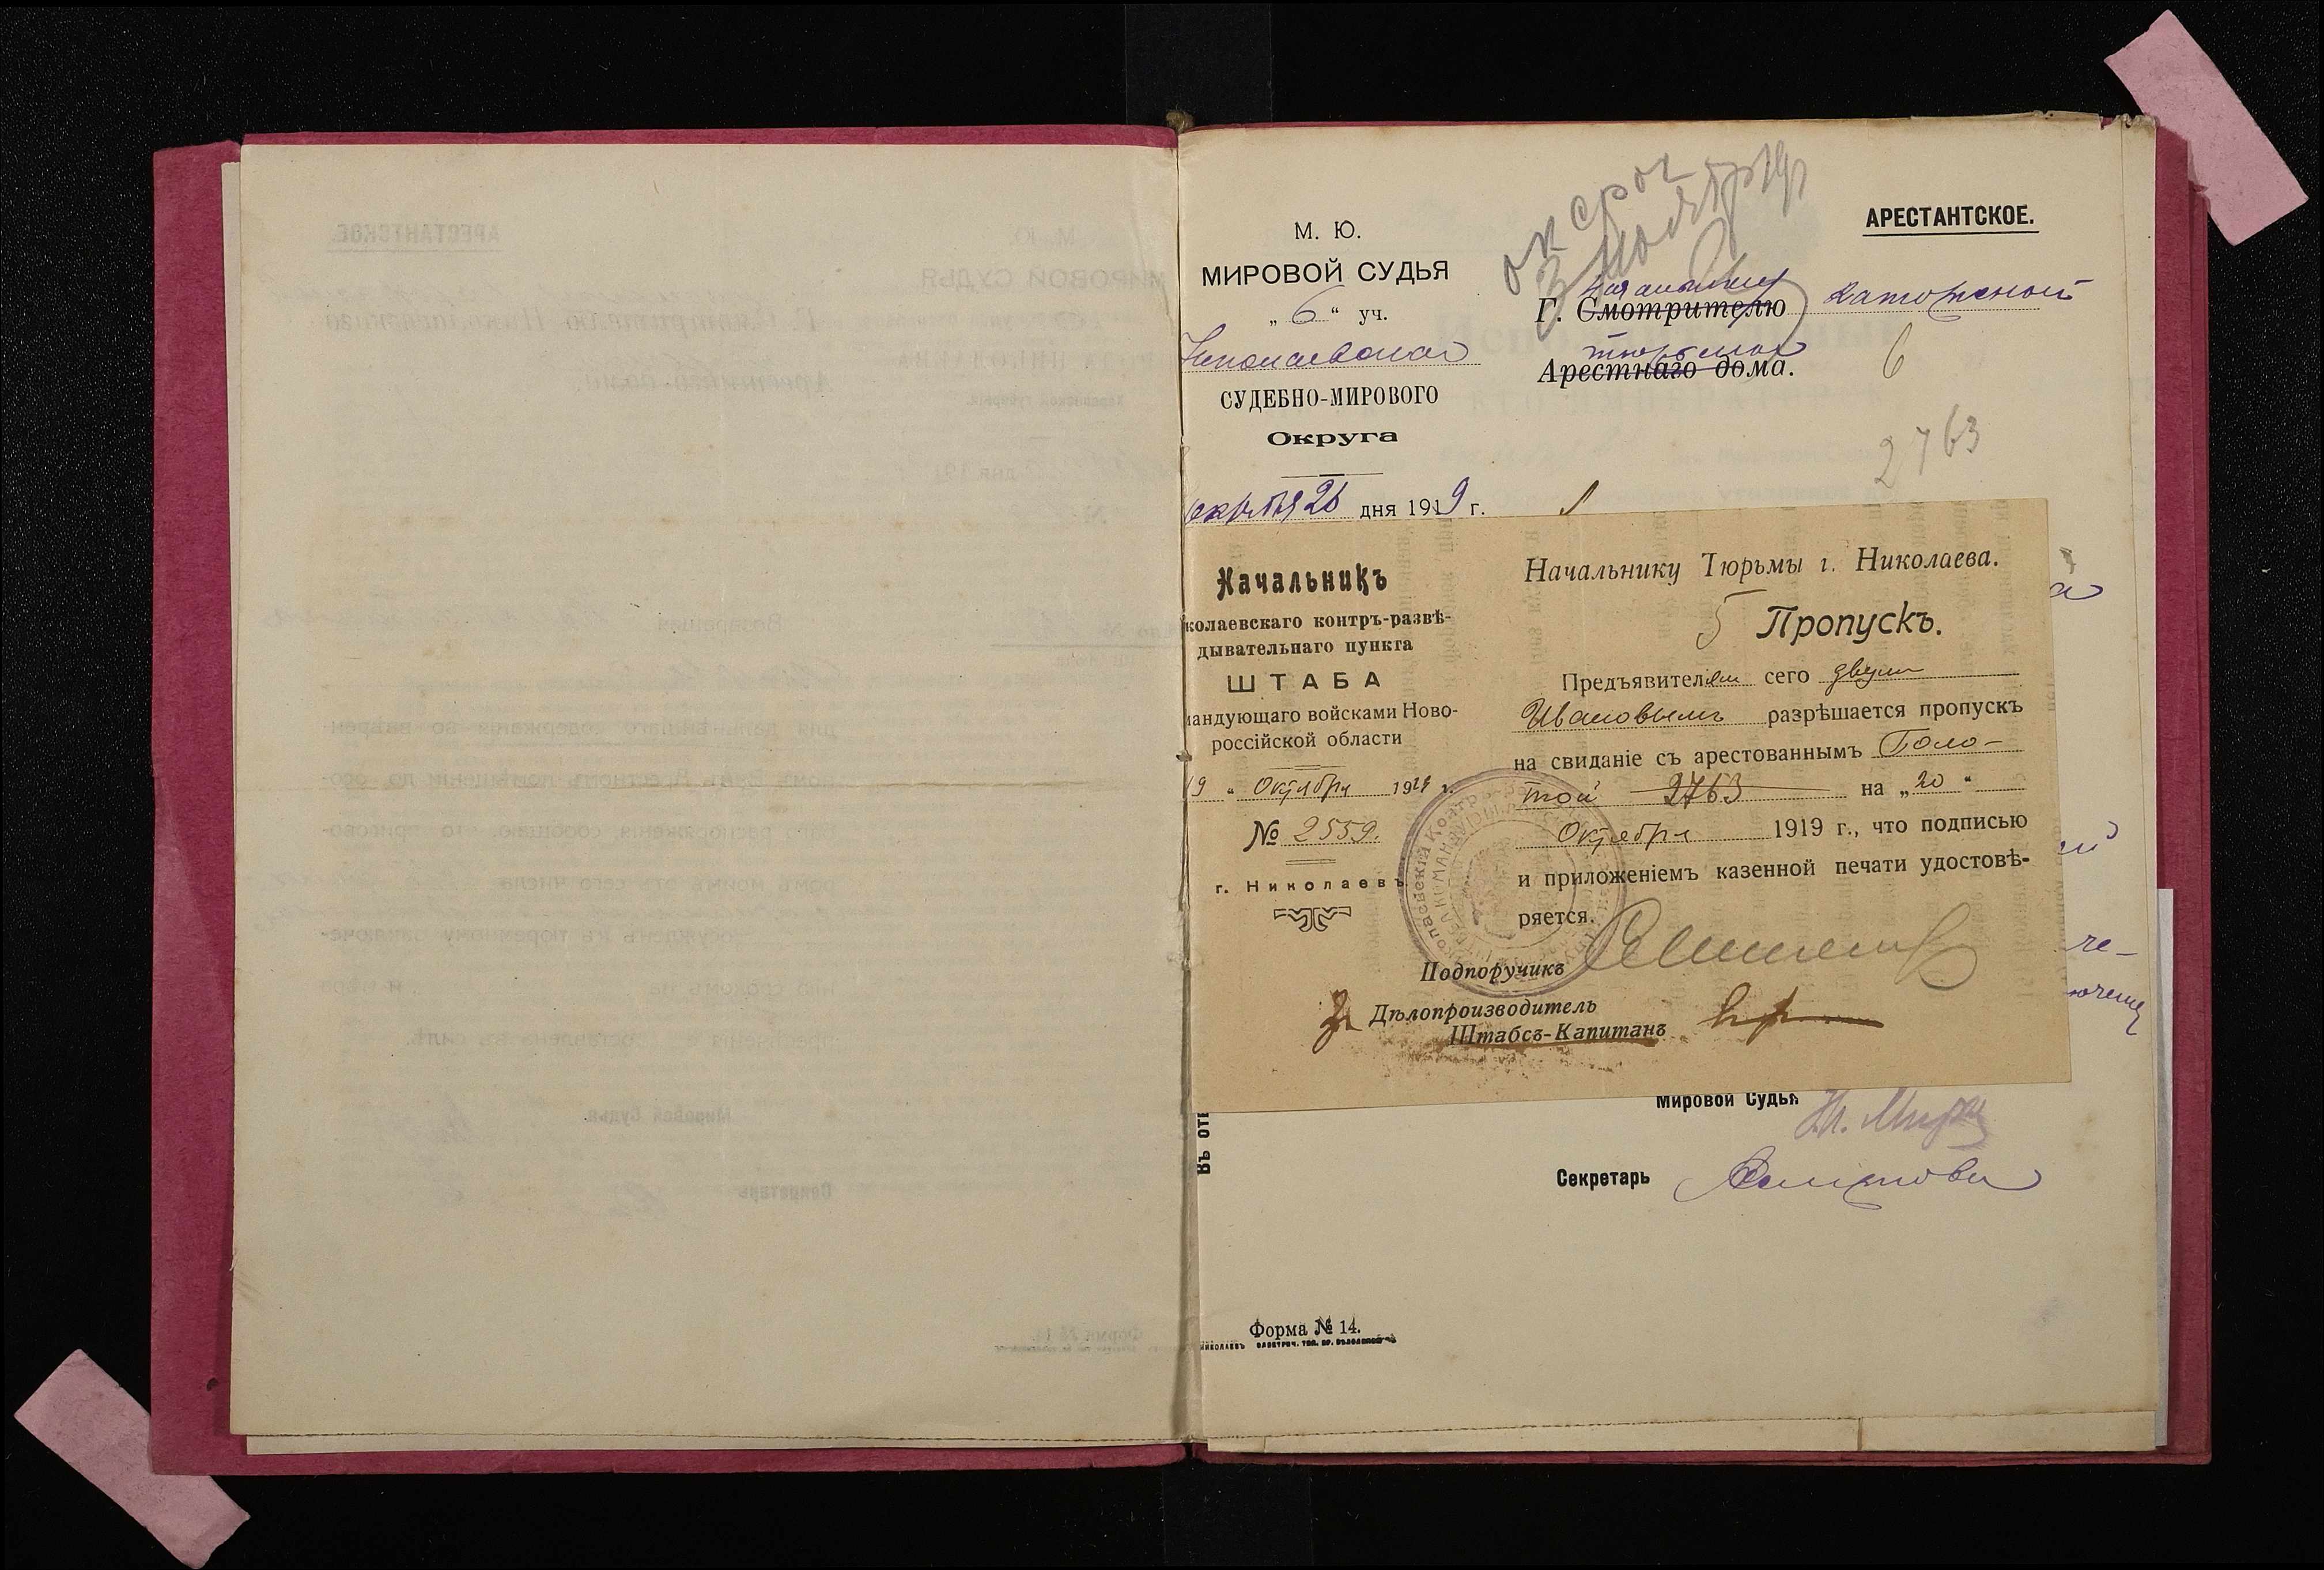 М. Ю.
МИРОВОЙ СУДЬЯ
„ 6 “ уч.
Николаевскаго
СУДЕБНО-МИРОВОГО
Округа
октября 26 дня 1919 г.
АРЕСТАНТСКОЕ.
ок срок
3 ноября
Начальнику каторжной
Г. Смотрителю
тюрьмы
Арестнаго дома.
6
2763
Начальникъ
колаевскаго контръ-развѣ-
дывательнаго пункта
ШТАБА
мандующаго войсками Ново-
россійской области
19 “ Октября 1919 г.
№ 2559.
г. Николаевъ
Начальнику Тюрьмы г. Николаева.
5 Пропускъ.
Предъявителям сего двум
Ивановымъ разрѣшается пропускъ
на свиданіе съ арестованнымъ Голо-
той 2763 на „ 20 “
Октября 1919 г., что подписью
и приложеніемъ казенной печати удостовѣ-
ряется.
Подпоручикъ
За Дѣлопроизводитель
Штабсъ-Капитанъ
Мировой Судья
Секретарь
Въ отв
Форма № 14.